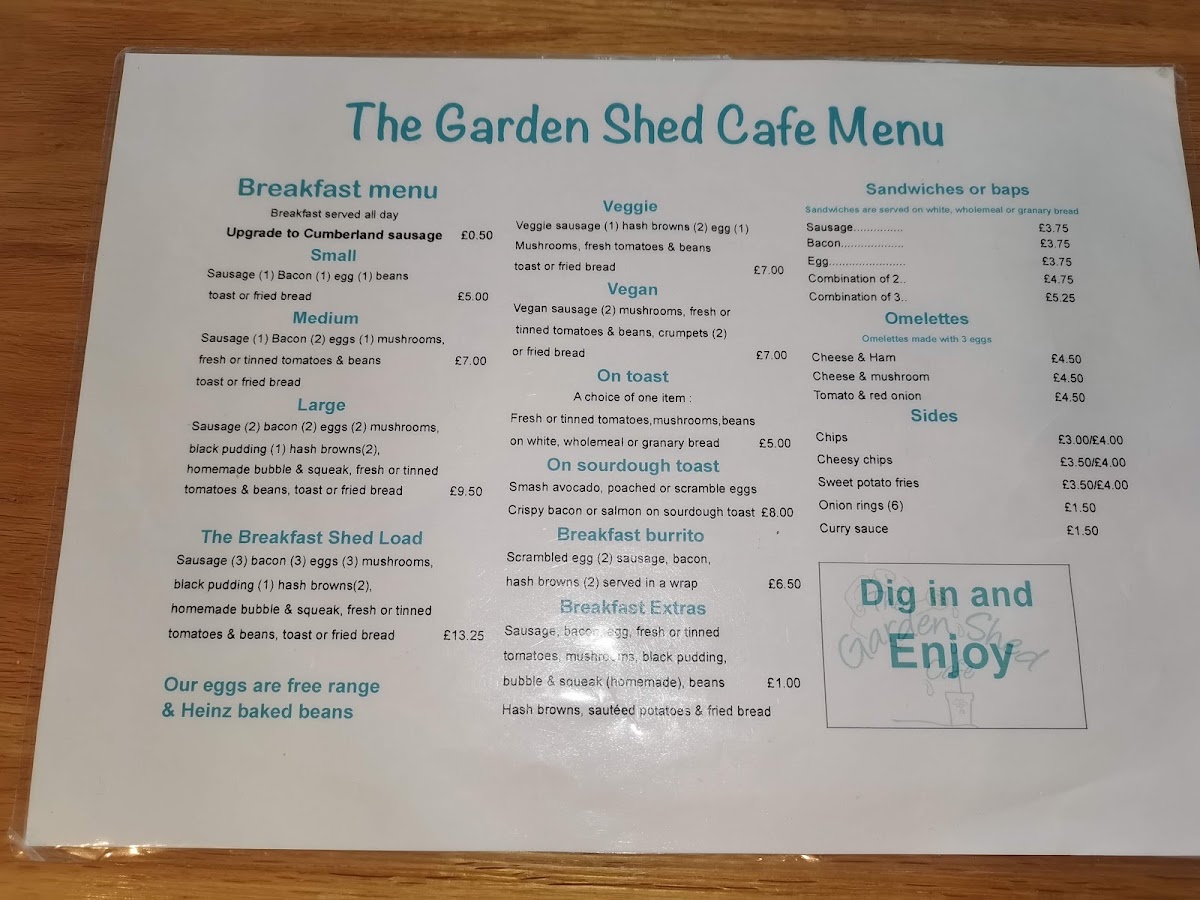 The Garden Shed Cafe Menu
Breakfast menu
Breakfast served all day
Upgrade to Cumberland sausage £0.50
Small
Sausage (1) Bacon (1) egg (1) beans
toast or fried bread £5.00
Medium
Sausage (1) Bacon (2) eggs (1) mushrooms,
fresh or tinned tomatoes & beans £7.00
toast or fried bread
Large
Sausage (2) bacon (2) eggs (2) mushrooms,
black pudding (1) hash browns(2),
homemade bubble & squeak, fresh or tinned
tomatoes & beans, toast or fried bread £9.50
The Breakfast Shed Load
Sausage (3) bacon (3) eggs (3) mushrooms,
black pudding (1) hash browns(2),
homemade bubble & squeak, fresh or tinned
tomatoes & beans, toast or fried bread £13.25
Our eggs are free range
& Heinz baked beans
Veggie
Veggie sausage (1) hash browns (2) egg (1)
Mushrooms, fresh tomatoes & beans
toast or fried bread £7.00
Vegan
Vegan sausage (2) mushrooms, fresh or
tinned tomatoes & beans, crumpets (2)
or fried bread £7.00
On toast
A choice of one item :
Fresh or tinned tomatoes,mushrooms,beans
on white, wholemeal or granary bread £5.00
On sourdough toast
Smash avocado, poached or scramble eggs
Crispy bacon or salmon on sourdough toast £8.00
Breakfast burrito
Scrambled egg (2) sausage, bacon,
hash browns (2) served in a wrap £6.50
Breakfast Extras
Sausage, bacon, egg, fresh or tinned
tomatoes, mushrooms, black pudding,
bubble & squeak (homemade), beans £1.00
Hash browns, sautéed potatoes & fried bread
Sandwiches or baps
Sandwiches are served on white, wholemeal or granary bread
Sausage............... £3.75
Bacon.................... £3.75
Egg........................ £3.75
Combination of 2.. £4.75
Combination of 3.. £5.25
Omelettes
Omelettes made with 3 eggs
Cheese & Ham £4.50
Cheese & mushroom £4.50
Tomato & red onion £4.50
Sides
Chips £3.00/£4.00
Cheesy chips £3.50/£4.00
Sweet potato fries £3.50/£4.00
Onion rings (6) £1.50
Curry sauce £1.50
Dig in and
Enjoy
Garden Shed
Cafe